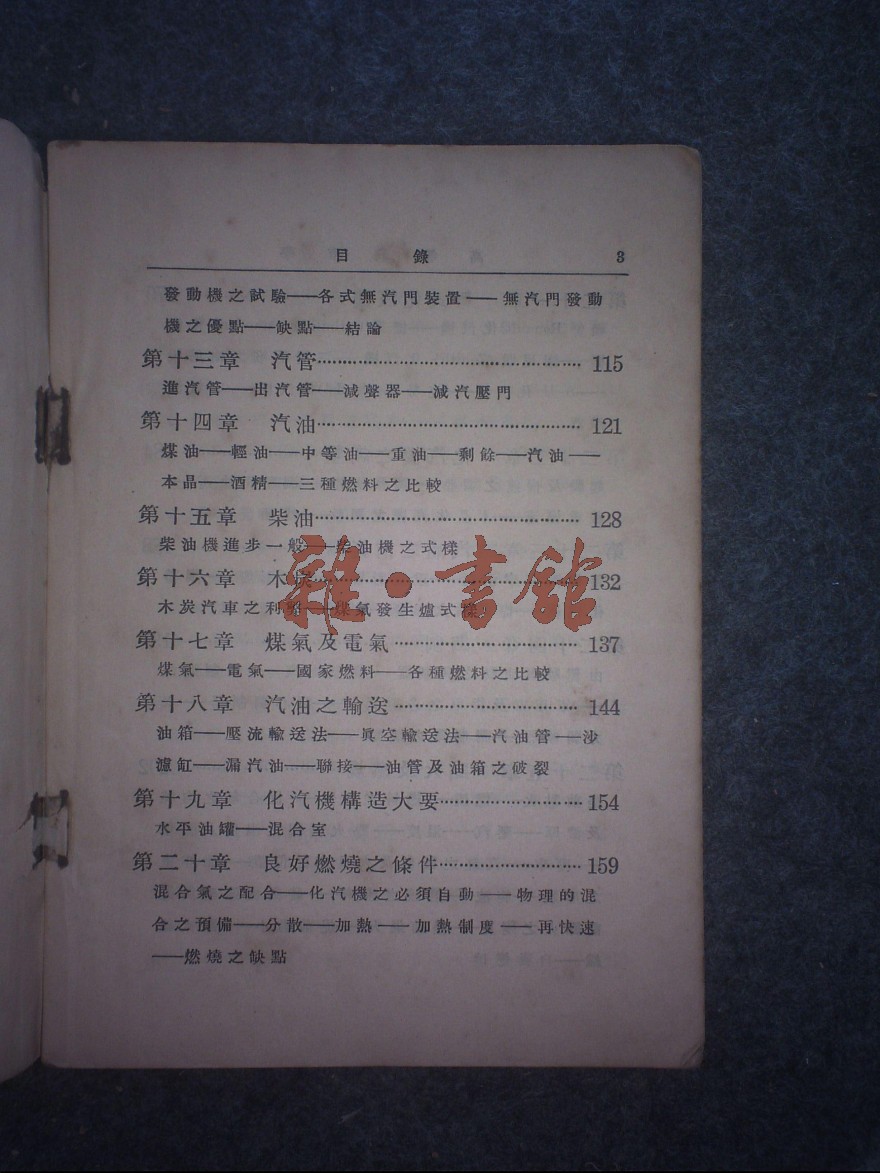 目錄 3
發動機之試驗——各式無汽門裝置——無汽門發動
機之優點——缺點——結論
第十三章 汽管 115
進汽管——出汽管——減聲器——減汽壓門
第十四章 汽油 121
煤油——輕油——中等油——重油——剩餘——汽油——
本晶——酒精——三種燃料之比較
第十五章 柴油 128
柴油機進步一般——柴油機之式樣
第十六章 木炭 132
木炭汽車之利——煤氣發生爐式樣
雜·書館
第十七章 煤氣及電氣 137
煤氣——電氣——國家燃料——各種燃料之比較
第十八章 汽油之輸送 144
油箱——壓流輸送法——眞空輸送法——汽油管——沙
濾缸——漏汽油——聯接——油管及油箱之破裂
第十九章 化汽機構造大要 154
水平油罐——混合室
第二十章 良好燃燒之條件 159
混合氣之配合——化汽機之必須自動——物理的混
合之預備——分散——加熱——加熱制度——再快速
——燃燒之缺點